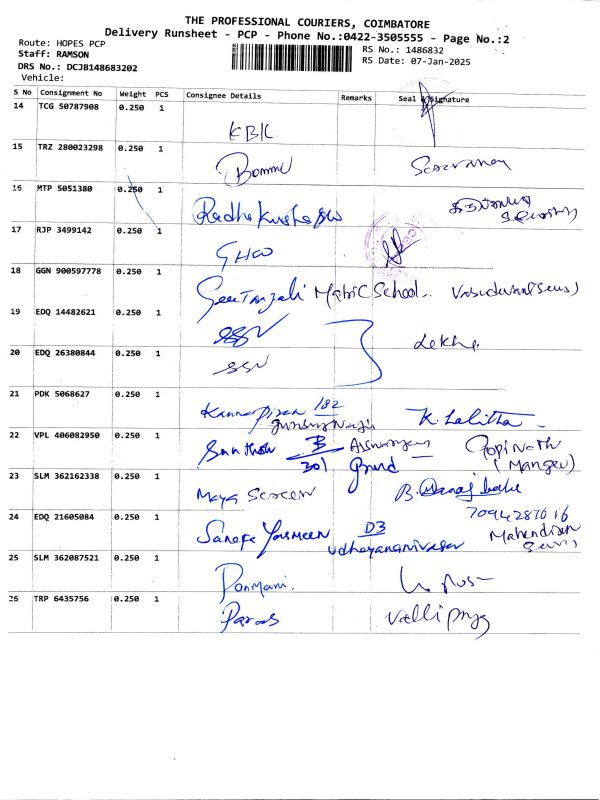 THE PROFESSIONAL COURIERS, COIMBATORE
Delivery Runsheet - PCP - Phone No.:0422-3505555 - Page No.:2
Route: HOPES PCP
Staff: RAMSON
DRS No.: DCJB148683202
Vehicle:
RS No.: 1486832
RS Date: 07-Jan-2025
S No Consignment No Weight PCS Consignee Details Remarks Seal & Signature
14 TCG 50787908 0.250 1 KBK
15 TRZ 280023298 0.250 1 Bommi Saravanan
16 MTP 5051380 0.250 1
17 RJP 3499142 0.250 1
18 GGN 900597778 0.250 1 Geetanjali Matric School..
19 EDQ 14482621 0.250 1 SSN Lekha.
20 EDQ 26380844 0.250 1 SSN
21 PDK 5068627 0.250 1 Kannapiran 182 K. Lalitha
22 VPL 406082950 0.250 1 Santhosh B 301 Grand Gopinath
23 SLM 362162338 0.250 1 Maya Screen
24 EDQ 21605084 0.250 1 Yasmeen D3 7094287616 Mahendiran
25 SLM 362087521 0.250 1 Ponmani.
26 TRP 6435756 0.250 1 Paras